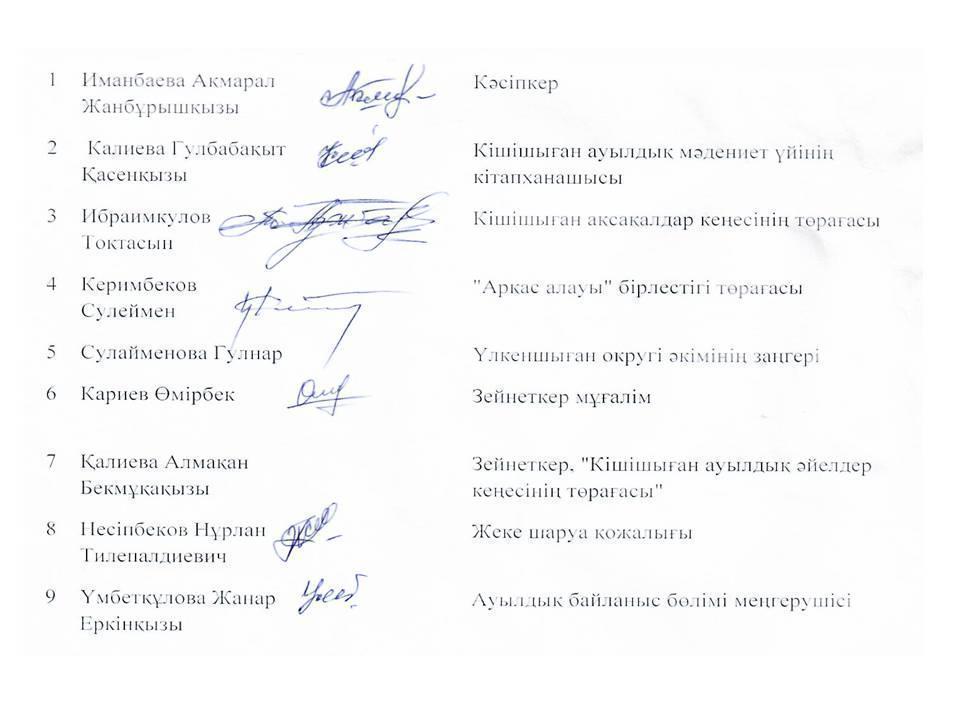 1 Иманбаева Ақмарал Кәсіпкер
Жанбұрышқызы
2 Калиева Гулбабақыт Кішішыған ауылдық мәдениет үйінің
Қасенқызы кітапханашысы
3 Ибраимкулов Кішішыған ақсақалдар кеңесінің төрағасы
Тоқтасын
4 Керимбеков "Арқас алауы" бірлестігі төрағасы
Сулеймен
5 Сулайменова Гулнар Үлкеншыған округі әкімінің заңгері
6 Кариев Өмірбек Зейнеткер мұғалім
7 Қалиева Алмақан Зейнеткер, "Кішішыған ауылдық әйелдер
Бекмұқақызы кеңесінің төрағасы"
8 Несіпбеков Нұрлан Жеке шаруа қожалығы
Тилепалдиевич
9 Үмбетқұлова Жанар Ауылдық байланыс бөлімі меңгерушісі
Еркінқызы